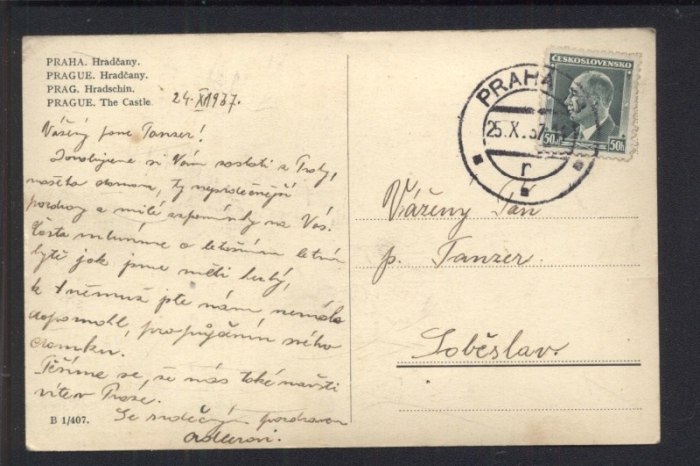 PRAHA. Hradčany.
PRAGUE. Hradčany.
PRAG. Hradschin.
PRAGUE. The Castle
24. X 1937.
Vážený pane Tanzer!
Dovolujeme si Vám zaslati z Prahy,
našeho domova, ty nejsrdečnější
pozdravy a milé vzpomínky na Vás.
Často mluvíme o letošním letním
bytě jak jsme měli hezký,
k němuž jste nám
dopomohl,
Těšíme se, že nás také navští
víte v Praze.
Se srdečným pozdravem
B 1/407.
ČESKOSLOVENSKO
50h 50h
PRAHA
25.X.37
r
Vážený Pán
p. Tanzer.
Soběslav.